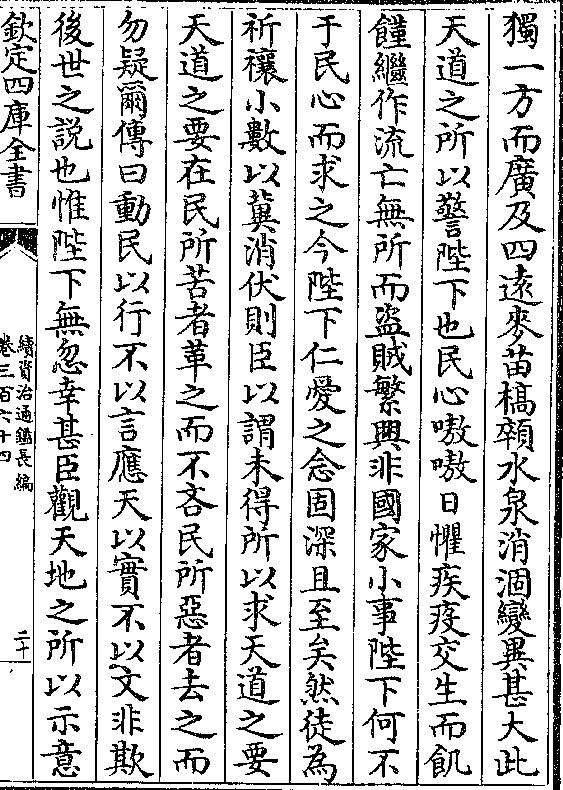 獨一方而廣及四遠麥苗槁顇水泉消涸變異甚大此
天道之所以警陛下也民心嗷嗷日懼疾疫交生而飢
饉繼作流亡無所而盜賊繁興非國家小事陛下何不
于民心而求之今陛下仁愛之念固深且至矣然徒為
祈禳小數以冀消伏則臣以謂未得所以求天道之要
天道之要在民所苦者革之而不吝民所惡者去之而
勿疑爾傳曰動民以行不以言應天以實不以文非欺
後世之説也惟陛下無忽幸甚臣觀天地之所以示意
欽定四庫全書
續資治通鑑長編
卷三百六十四
二十